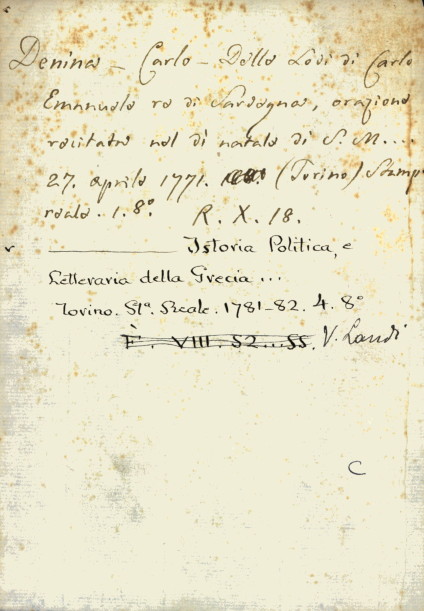 Denina - Carlo - Delle Lodi di Carlo
Emanuele re di Sardegna, orazione
recitata nel dì natale di S. M....
27. aprile 1771. (Torino) Stamp
reale. 1. 8º. R. X. 18.
Istoria Politica, e
Letteraria della Grecia ...
Torino. Stª. Reale. 1781-82. 4. 8º
È. VIII. 52...55. V. Landi
C